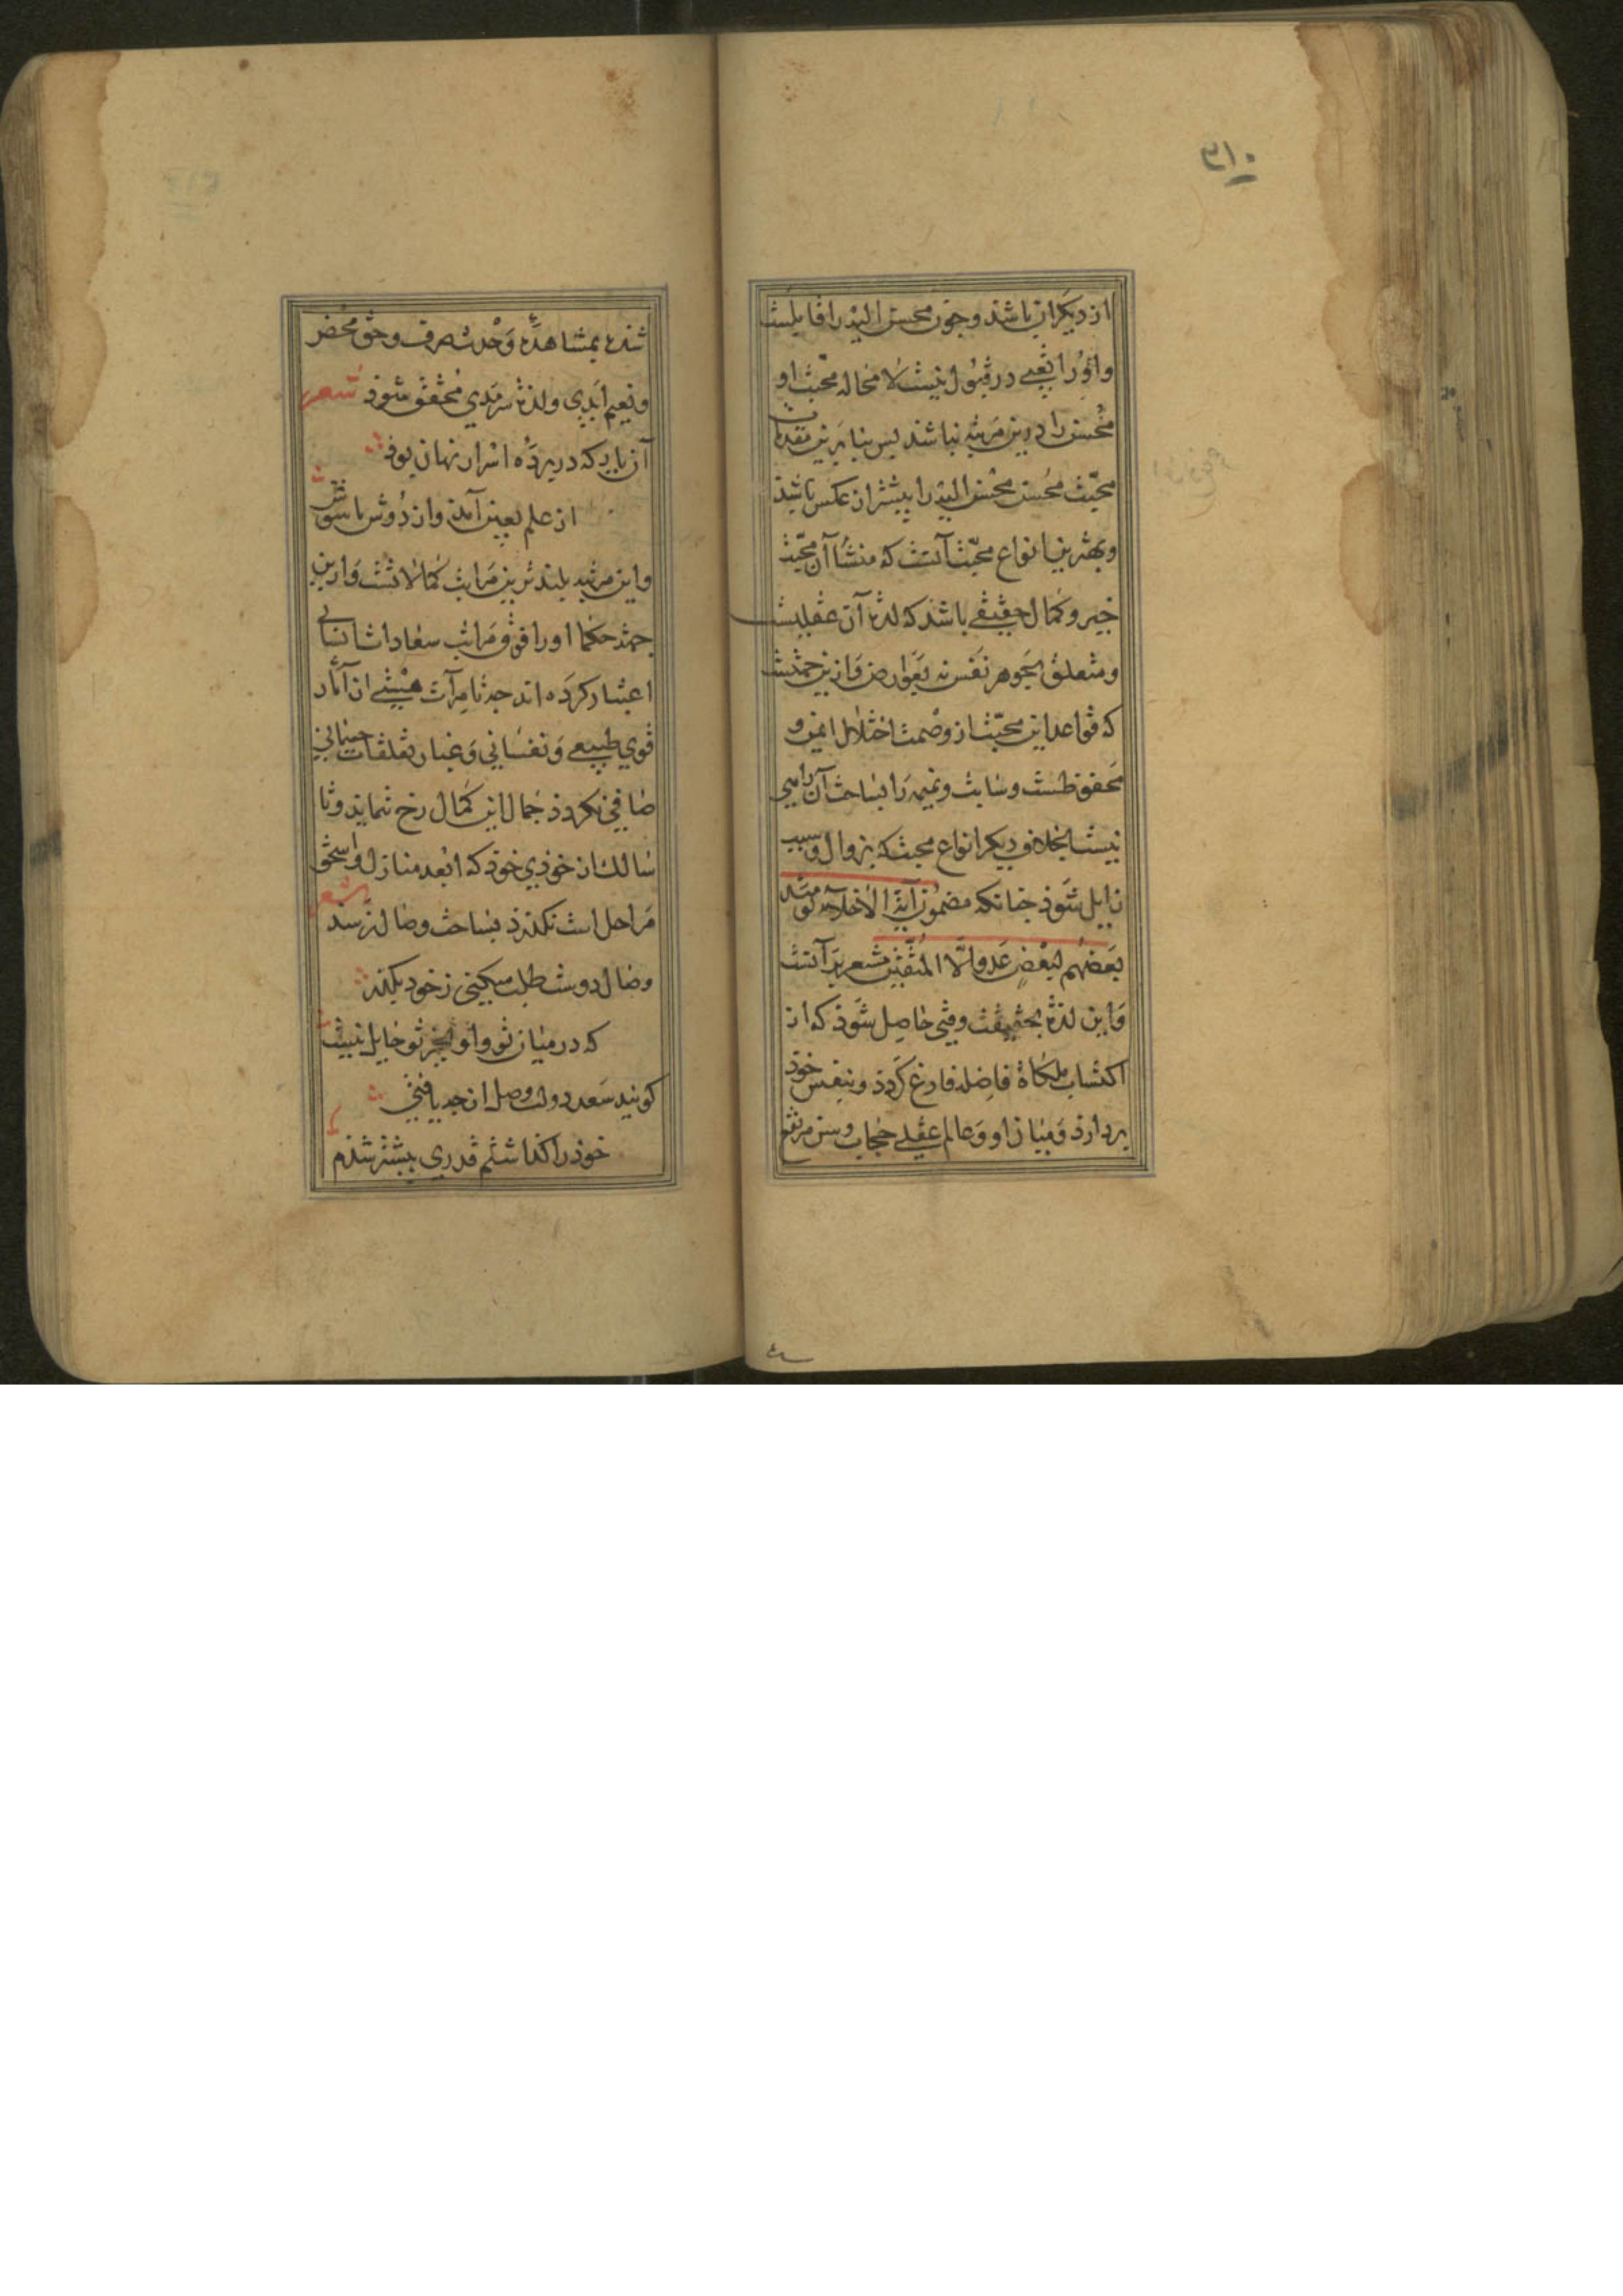 ٣١٠
از دیکران باشد و چون محسن الیه را قابلیست
و او را تعبی در قبول نیست لا محاله محبت او
محسن را درین مرتبه نباشد پس بنا برین مقدمات
محبت محسن محسن الیه را بیشتر از عکس باشد
و بهترین انواع محبت آنست که منشا آن محبت
خیر و کمال حقیقی باشد که لذة آن عقلیست
و متعلق بجوهر نفس نه بعوارض و ازین جهتست
که قواعد این محبت از وصمت اختلال ایمن و
محفوظست و سایت و نمیمه را بساحت آن راهی
نیست بخلاف دیکر انواع محبت که بزوال سبب
زایل شود چنانکه مضمون آیة الاخلاء یومئذ
بعضهم لبعض عدو الا المتقین مشعر بر آنست
و این لذة بحقیقت وقتی حاصل شوذ که از
اکتساب ملکاة فاضله فارغ کردذ و بنفس خوذ
پردازذ و میان او و عالم عقلی حجاب مرتفع
شذه بمشاهدهٔ وحدت صرف و حق محض
و نعیم ابدی و لذة سرمدی محقق شوذ شعر
آن یار که در پرده اسرار نهان بوذ
از علم بعین آمذ و از کوش باغوش
و این مرتبه بلندترین مراتب کمالاتست و ازین
جهة حکما او را فوق مراتب سعادات انسانی
اعتبار کرده اند چه تا مرآت هستی از آثار
قوی طبیعی و نفسانی و غبار تعلقات جسمانی
صافی نکردذ جمال این کمال رخ ننماید و تا
سالک از خوذی خوذ که ابعد منازل و اسحق
مراحل است نکذرذ بساحت وصال نرسد شعر
وصال دوست طلب میکنی ز خود بکذر
که در میان تو و او بجز تو حایل نیست
کویند سعد دولت وصل از چه یافتی
خوذ را کذاشتم قدری بیشتر شذم